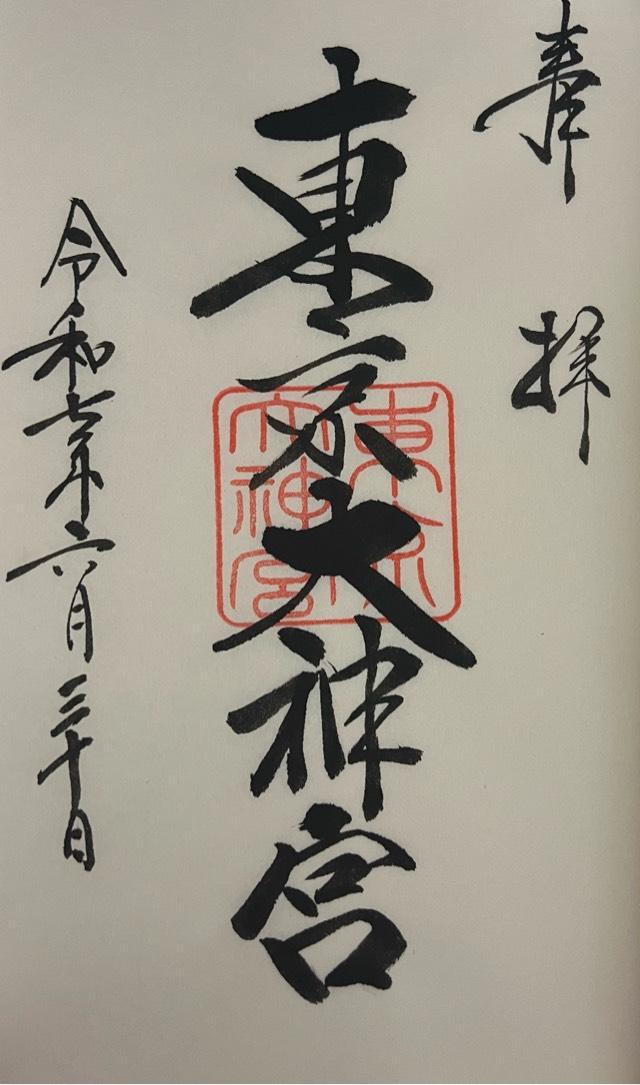 奉拝
東京大神宮
東京大神宮
令和七年六月三十日